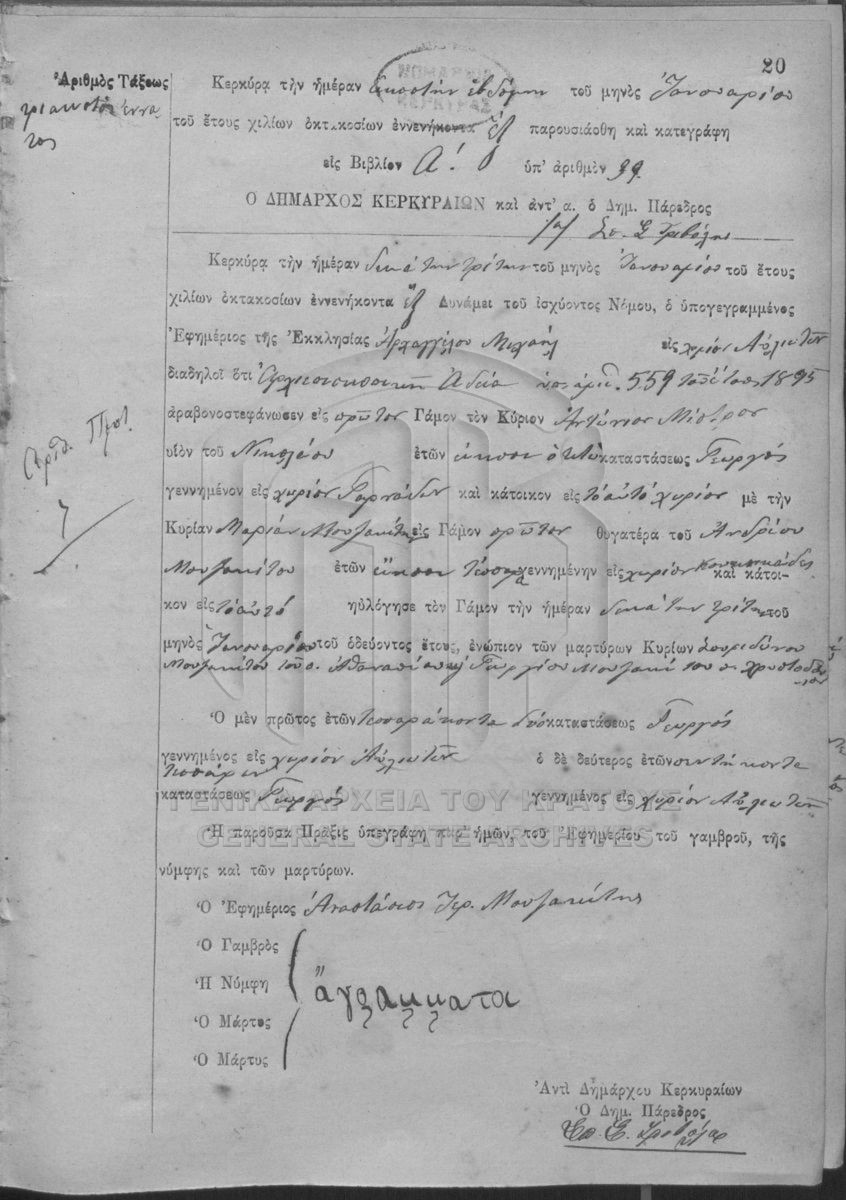 20
Ἀριθμὸς Τάξεως
τριακοστὸς ἔννατος
Κερκύρᾳ τὴν ἡμέραν εἰκοστὴν ἑβδόμην τοῦ μηνὸς Ἰανουαρίου
ΝΟΜΑΡΧΙΑ ΚΕΡΚΥΡΑΣ
τοῦ ἔτους χιλίων ὀκτακοσίων ἐννενήκοντα ἓξ παρουσιάσθη καὶ κατεγράφη
εἰς Βιβλίον Α! ὑπ' ἀριθμὸν 39
Ο ΔΗΜΑΡΧΟΣ ΚΕΡΚΥΡΑΙΩΝ καὶ ἀντ' α. ὁ Δημ. Πάρεδρος
Σπ.
Κερκύρᾳ τὴν ἡμέραν δεκάτην τρίτην τοῦ μηνὸς Ἰανουαρίου τοῦ ἔτους
χιλίων ὀκτακοσίων ἐννενήκοντα ἓξ Δυνάμει τοῦ ἰσχύοντος Νόμου, ὁ ὑπογεγραμμένος
Ἐφημέριος τῆς Ἐκκλησίας Ἀρχαγγέλου Μιχαὴλ εἰς χωρίον Αὐλιωτῶν
διαδηλοῖ ὅτι Ἀρχιεπισκοπικῇ Ἀδείᾳ ὑπ' ἀριθ. 559 τοῦ ἔτους 1895
ἀραβονοστεφάνωσεν εἰς πρῶτον Γάμον τὸν Κύριον Ἀντώνιον Μέστρον
Ἀριθ. Πρωτ.
7
υἱὸν τοῦ Νικολάου ἐτῶν εἴκοσι ὀκτὼ καταστάσεως Γεωργὸς
γεννημένον εἰς χωρίον καὶ κάτοικον εἰς τὸ αὐτὸ χωρίον μὲ τὴν
Κυρίαν Μαρίαν Μουζακίτη εἰς Γάμον πρῶτον θυγατέρα τοῦ Ἀνδρέου
Μουζακίτου ἐτῶν εἴκοσι τέσσαρα γεννημένην εἰς χωρίον καὶ κάτοι-
κον εἰς τὸ αὐτό ηὐλόγησε τὸν Γάμον τὴν ἡμέραν δεκάτην τρίτην τοῦ
μηνὸς Ἰανουαρίου τοῦ ὁδεύοντος ἔτους, ἐνώπιον τῶν μαρτύρων Κυρίων Σπυρίδωνος
Μουζακίτου τοῦ π. Ἀθανασίου καὶ Γεωργίου Μουζακίτου π. Χριστοδούλου
Ὁ μὲν πρῶτος ἐτῶν τεσσαράκοντα δύο καταστάσεως Γεωργὸς
γεννημένος εἰς χωρίον Αὐλιωτῶν ὁ δὲ δεύτερος ἐτῶν πεντήκοντα
τεσσάρων
καταστάσεως Γεωργὸς γεννημένος εἰς χωρίον Αὐλιωτῶν
ΓΕΝΙΚΑ ΑΡΧΕΙΑ ΤΟΥ ΚΡΑΤΟΥΣ
GENERAL STATE ARCHIVES
Ἡ παροῦσα Πρᾶξις ὑπεγράφη παρ' ἡμῶν, τοῦ Ἐφημερίου τοῦ γαμβροῦ, τῆς
νύμφης καὶ τῶν μαρτύρων.
Ὁ Ἐφημέριος Ἀναστάσιος Ἱερ. Μουζακίτης
Ὁ Γαμβρὸς
Ἡ Νύμφη
ἀγράμματοι
Ὁ Μάρτυς
Ὁ Μάρτυς
Ἀντὶ Δημάρχου Κερκυραίων
Ὁ Δημ. Πάρεδρος
Σπ.